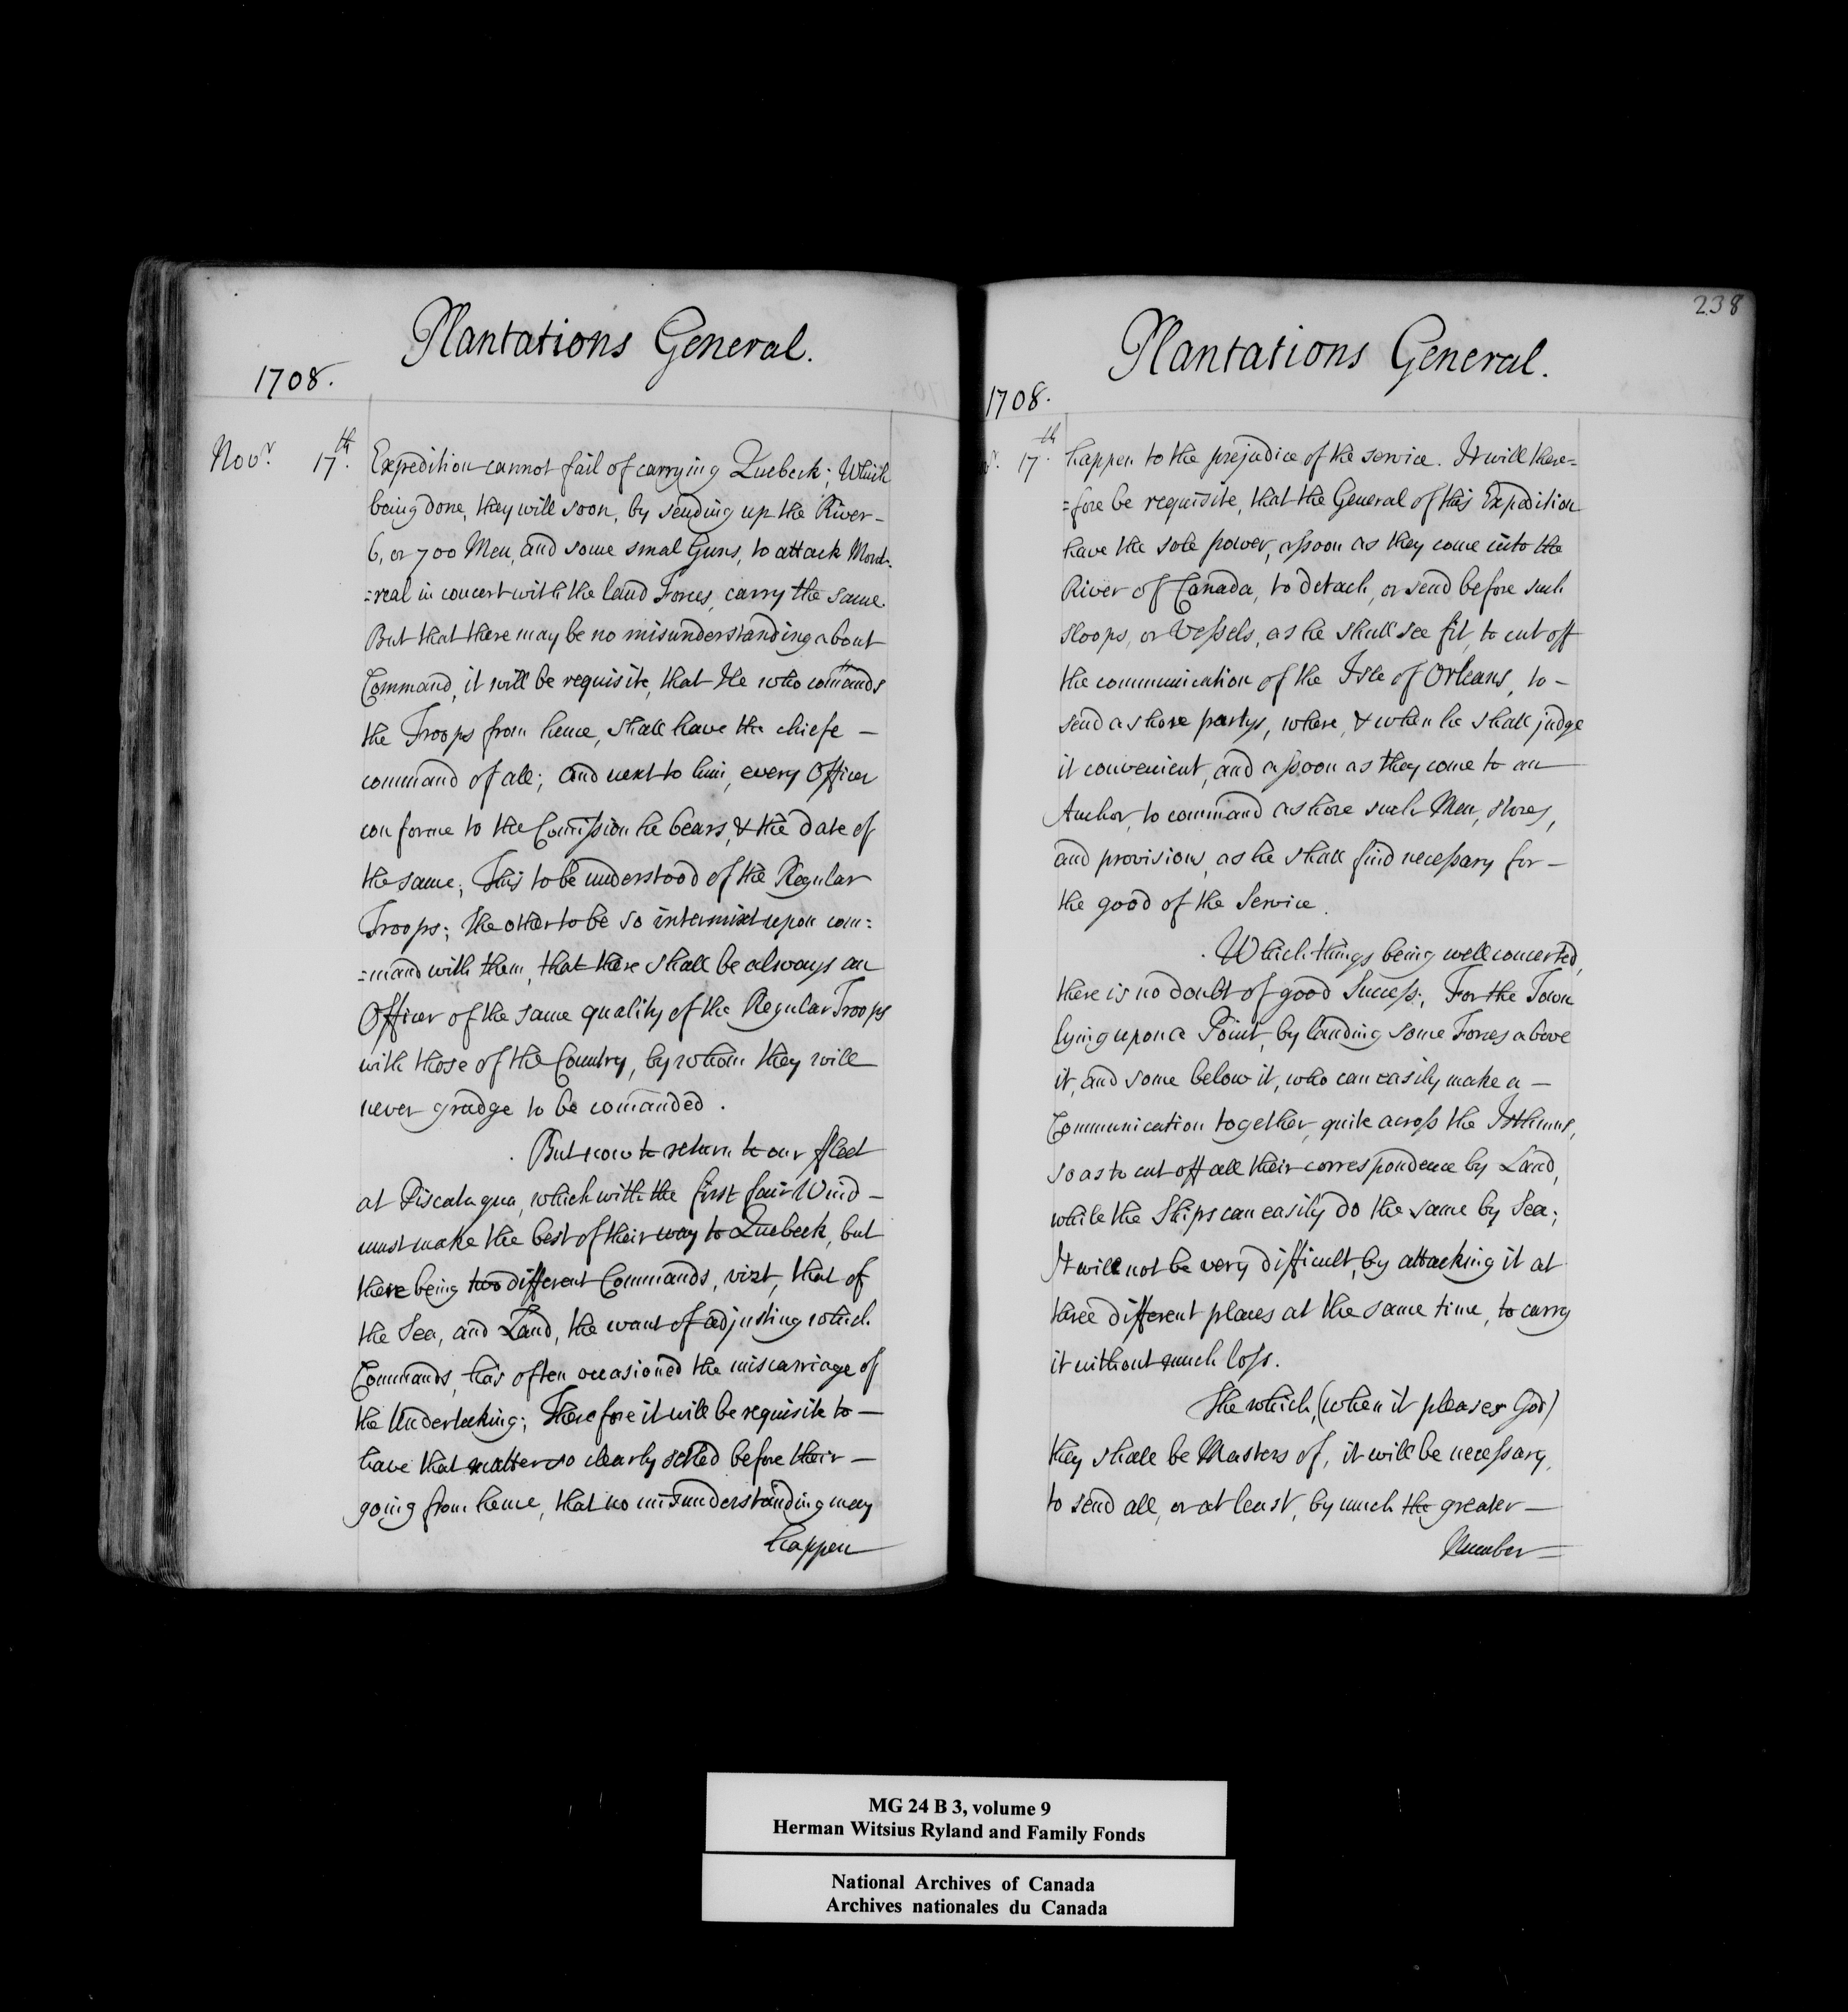 Plantations General.
1708.
Novr. 17th.
Expedition cannot fail of carrying Quebeck; Which
being done, they will soon, by sending up the River -
6, or 700 Men, and some smal Guns, to attack Mont-
=real in concert with the land Forces, carry the same.
But that there may be no misunderstanding about
Command, it will be requisite, that He who comands
the Troops from hence, shall have the chiefe -
command of all; and next to him, every Officer
conforme to the Comission he bears, & the date of
the same; This to be understood of the Regular
Troops; the other to be so intermixt upon com:
=mand with them, that there shall be always an
Officer of the same quality of the Regular Troops
with those of the Country, by whom they will
never grudge to be comanded.
But now to return to our ffleet
at Piscataqua, which with the first fair Wind -
must make the best of their way to Quebeck, but
there being two different Commands, vizt, that of
the Sea, and Land, the want of adjusting which
Commands, has often occasioned the miscarriage of
the Undertaking; Therefore it will be requisite to -
have that matter so clearly setled before their -
going from hence, that no misunderstanding may
happen
238
Plantations General.
1708.
r. 17th.
happen to the prejudice of the service. It will there=
=fore be requisite, that the General of this Expedition
have the sole power, assoon as they come into the
River of Canada, to detach, or send before such
sloops, or Vessels, as he shall see fit, to cut off
the communication of the Isle of Orleans, to -
send ashore partys, where, & when he shall judge
it convenient, and assoon as they come to an
Anchor, to command ashore such Men, stores,
and provisions, as he shall find necessary for -
the good of the Service.
Which things being well concerted,
there is no doubt of good Success; For the Town
lying upon a Point, by landing some Forces above
it, and some below it, who can easily make a -
Communication together, quite across the Isthmus,
so as to cut off all their correspondence by Land,
while the Ships can easily do the same by Sea;
It will not be very difficult, by attacking it at
three different places at the same time, to carry
it without much loss.
The which, (when it pleases God)
they shall be Masters of, it will be necessary,
to send all, or at least, by much the greater -
Number
MG 24 B 3, volume 9
Herman Witsius Ryland and Family Fonds
National Archives of Canada
Archives nationales du Canada